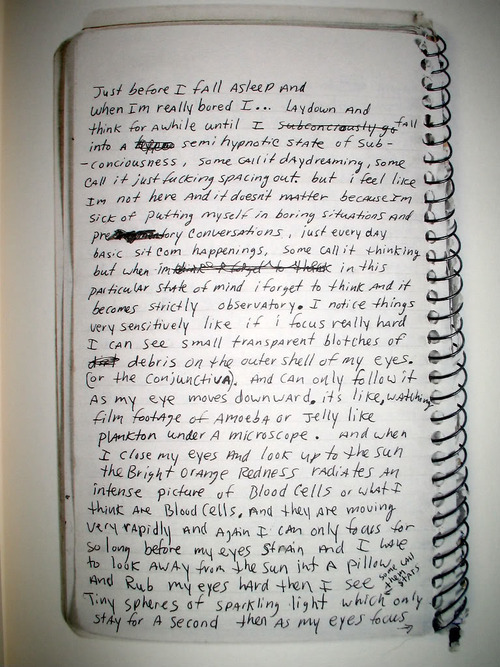 Just before I fall Asleep And
when Im really bored I... LAydown And
think for Awhile until I subconciously go fall
into A semi hypnotic state of Sub-
-conciousness, some call it daydreaming, some
call it just fucking spacing out. but i feel like
Im not here And it doesnt matter because Im
sick of putting myself in boring situations And
pre ory conversations, just every day
basic sit com happenings, some call it thinking
but when im in this
particular state of mind i forget to think And it
becomes strictly observatory. I notice things
very sensitively like if i focus really hard
I can see small transparent blotches of
debris on the outer shell of my eyes.
(or the conjunctiva). And can only follow it
as my eye moves downward. its like, watching
film footage of Amoeba or Jelly like
plankton under A microscope. And when
I close my eyes And look up to the sun
the Bright orange Redness radiates An
intense picture of Blood Cells or what I
think Are Blood Cells. And they are moving
very rapidly And Again I can only focus for
so long before my eyes strain And I have
to look away from the sun int A pillow
And Rub my eyes hard then I see some call them stars
Tiny spheres of sparkling light which only
stay for A second then As my eyes focus →